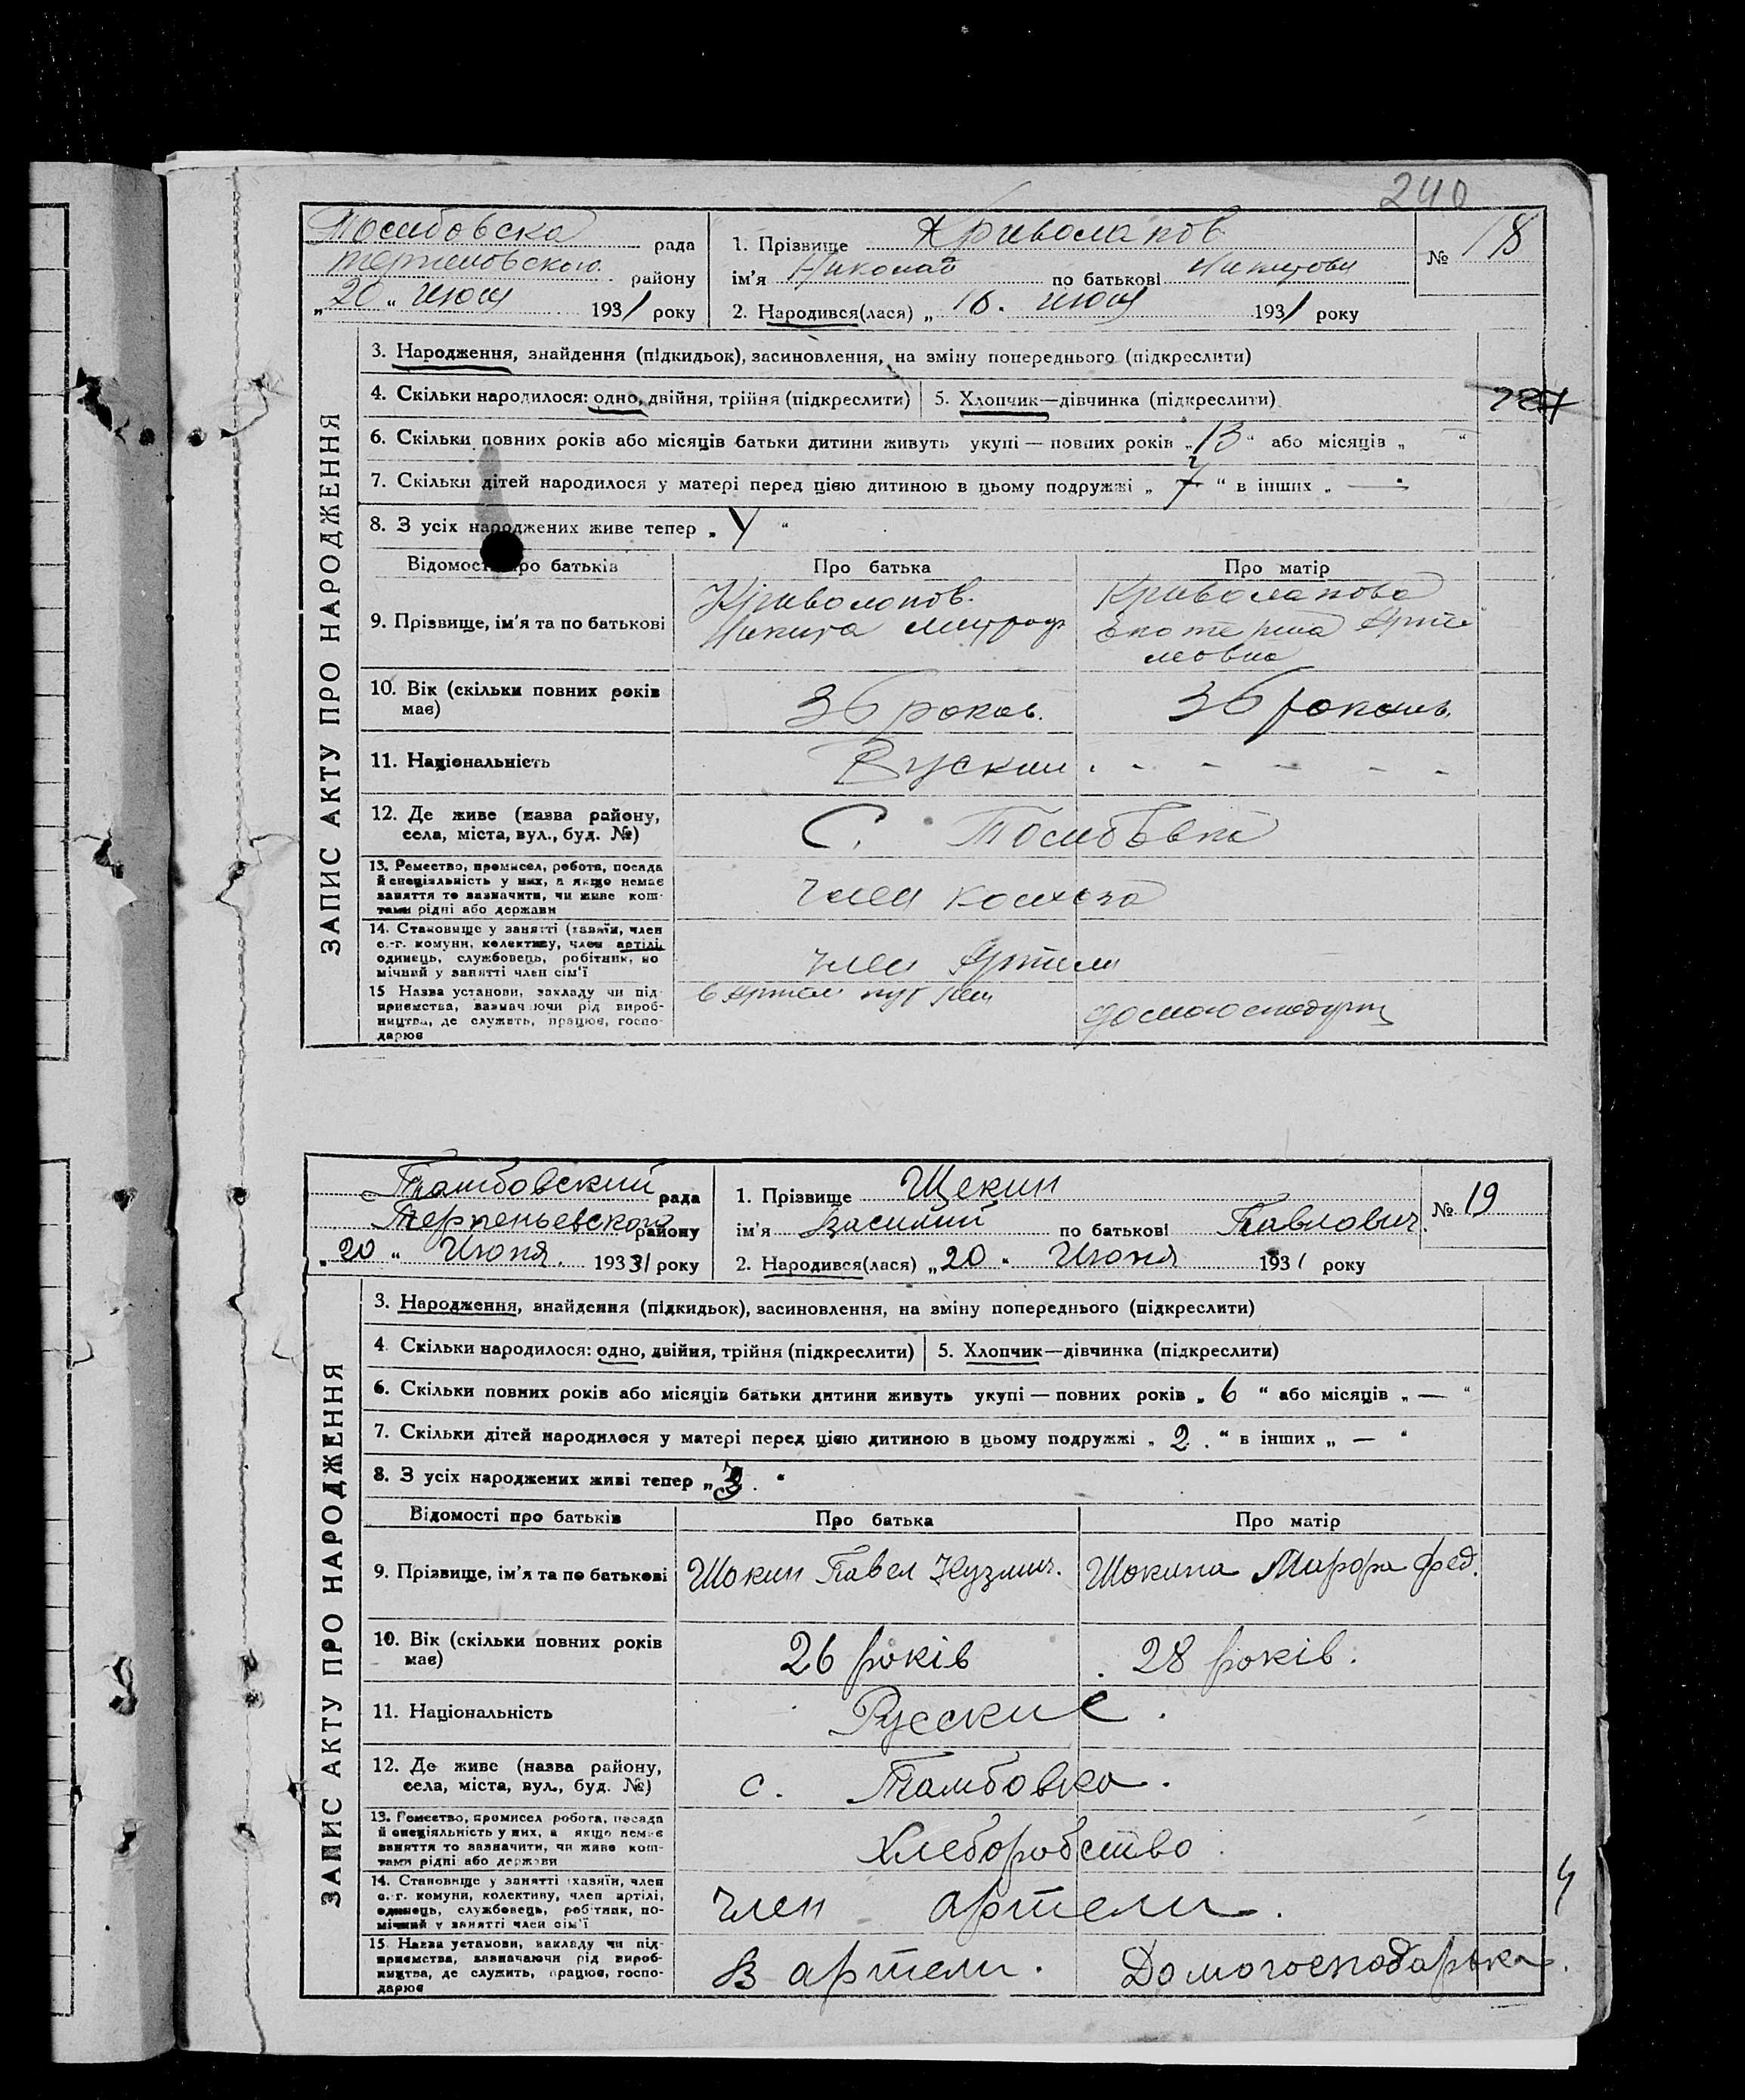 240
Тосибовска рада
района
„20„ июня 1931 року
1. Прізвище Криволапов
ім'я Николай по батькові
2. Народився(лася) „ 18. июня 1931 року
№ 18
ЗАПИС АКТУ ПРО НАРОДЖЕННЯ
3. Народження, знайдення (підкидьок), засиновлення, на зміну попереднього (підкреслити)
4. Скільки народилося: одно, двійня, трійня (підкреслити) 5. Хлопчик—дівчинка (підкреслити)
6. Скільки повних років або місяців батьки дитини живуть укупі — повних років „13“ або місяців „ — “
7. Скільки дітей народилося у матері перед цією дитиною в цьому подружжі „ “ в інших „ — “
8. З усіх народжених живе тепер „ “
Відомості про батьків Про батька Про матір
9. Прізвище, ім'я та по батькові
Криволопов.
Никита Митроф
Криволапова
Екотерина Арте
мовна
10. Вік (скільки повних років має)
36 роков. 36
11. Національність
Руский . - - - - -
12. Де живе (назва району, села, міста, вул., буд. №)
С.
13. Ремество, промисел, робота, посада
й спеціяльність у них, а якщо немає
заняття то зазначити, чи живе кош-
тами рідні або держави
член колхоза
14. Становище у занятті (хазяїн, член
с.-г. комуни, колективу, член артілі,
одинець, службовець, робітник, по
мічний у занятті член сім'ї
член Артели
15 Назва установи, закладу чи під-
приємства, зазначаючи рід вироб-
ництва, де служить, працює, госпо-
дарює
в Артели
Тамбовский рада
Терпеньевского району
„20„ Июня. 19331 року
1. Прізвище Щекин
ім'я Василий по батькові Павлович.
2. Народився(лася) „20“ Июня 1931 року
№ 19
ЗАПИС АКТУ ПРО НАРОДЖЕННЯ
3. Народження, знайдення (підкидьок), засиновлення, на зміну попереднього (підкреслити)
4. Скільки народилося: одно, двійня, трійня (підкреслити) 5. Хлопчик—дівчинка (підкреслити)
6. Скільки повних років або місяців батьки дитини живуть укупі — повних років „ 6 “ або місяців „ — “
7. Скільки дітей народилося у матері перед цією дитиною в цьому подружжі „ 2. “ в інших „ — “
8. З усіх народжених живі тепер „3. “
Відомості про батьків Про батька Про матір
9. Прізвище, ім'я та по батькові Шокин Павел Кузмич. Шокина Марфа Фед.
10. Вік (скільки повних років має)
26 років 28 років.
11. Національність Русские.
12. Де живе (назва району, села, міста, вул., буд. №)
с. Тамбовка.
13. Ремество, промисел робота, посада
й спеціяльність у них, а якщо немає
заняття то зазначити, чи живе кош-
тами рідні або держави
Хлеборобство
14. Становище у занятті (хазяїн, член
с.-г. комуни, колективу, член артілі,
одинець, службовець, робітник, по-
мічний у занятті член сім'ї
член артели.
15. Назва установи, закладу чи під-
приємства, зазначаючи рід вироб-
ництва, де служить, працює, госпо-
дарює
В артели. Домогосподарька.